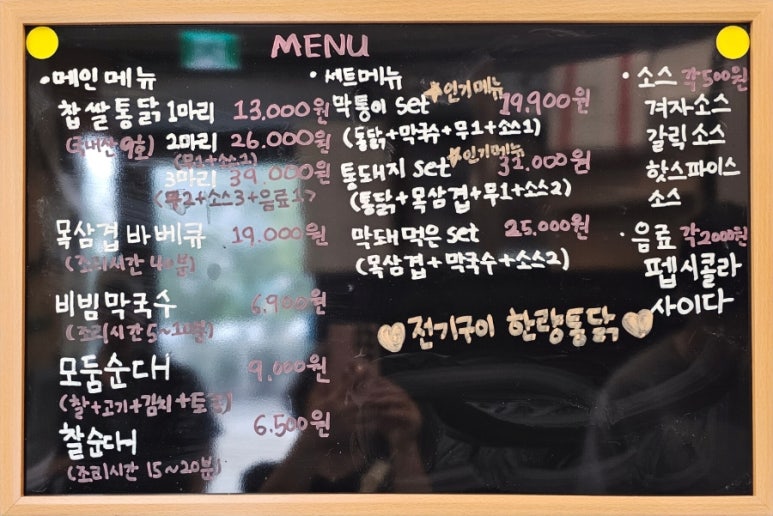 MENU
• 메인메뉴
찹쌀통닭 1마리 13.000원
(국내산 9호) 2마리 26.000원
(무1+소스2)
3마리 39.000원
(무2+소스3+음료1)
목삼겹 바베큐 19.000원
(조리시간 40분)
비빔막국수 6.900원
(조리시간 5~10분)
모둠순대 9.000원
(찰+고기+김치+토종)
찰순대 6.500원
(조리시간 15~20분)
• 세트메뉴
막통이 set 인기메뉴 19.900원
(통닭+막국수+무1+소스1)
통돼지 set 인기메뉴 31.000원
(통닭+목삼겹+무1+소스2)
막돼먹은 set 25.000원
(목삼겹+막국수+소스2)
전기구이 한량통닭
• 소스 각 500원
겨자소스
갈릭소스
핫스파이스
소스
• 음료 각 2000원
펩시콜라
사이다